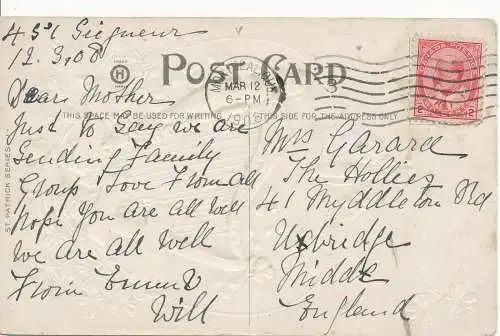 451 Siegneur
12.3.08
POST CARD
MONTREAL, QUE.
MAR 12
6-PM
CANADA POSTAGE
2 2
Dear Mother
THIS SPACE MAY BE USED FOR WRITING
THIS SIDE FOR THE ADDRESS ONLY.
Just to say we are
Sending Family
Group Love From all
hope you are all well
we are all well
From Emm &
Will
ST PATRICK SERIES
Mrs Garard
The Hollies
41 Myddleton Rd
Uxbridge
Middx
England